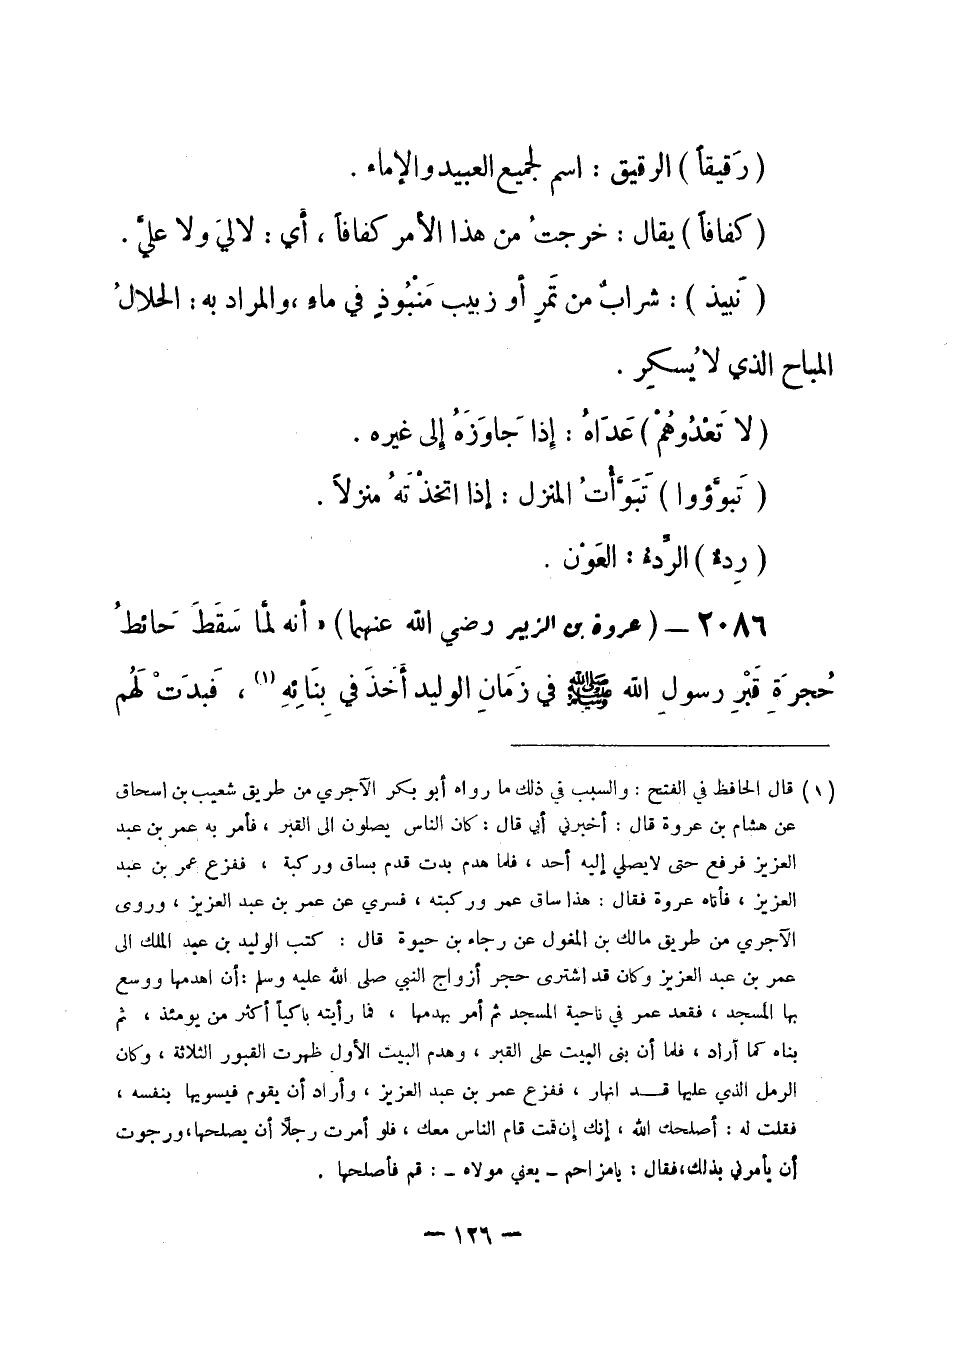 ( رَقيقاً ) الرقيق : اسم لجميع العبيد والإماء .
( كفافاً ) يقال : خرجتُ من هذا الأمر كفافاً ، أي : لا ليَ ولا عليَّ .
( نَبيذ ) : شرابٌ من تَمرٍ أو زبيب مَنْبُوذٍ في ماء ، والمراد به : الحلالُ
المباح الذي لا يُسكِر .
( لا تَعْدُوهُمْ ) عَدَاهُ : إذا جَاوَزَهُ إلى غيره .
( تَبوَّؤوا ) تَبَوَّأْتُ المنزل : إذا اتخذْتَهُ منزلاً .
( رِدء ) الرِّدء : العَوْن .
٢٠٨٦ – ( عروة بن الزبير رضي الله عنهما ) « أنه لمَّا سَقَطَ حَائطُ
حُجرَةِ قَبْرِ رسولِ الله ﷺ في زَمَانِ الوليد أَخَذَ في بِنَائِهِ (١) ، فَبدَتْ لَهُم
(١) قال الحافظ في الفتح : والسبب في ذلك ما رواه أبو بكر الآجري من طريق شعيب بن اسحاق
عن هشام بن عروة قال : أخبرني أبي قال : كان الناس يصلون الى القبر ، فأمر به عمر بن عبد
العزيز فرفع حتى لايصلي إليه أحد ، فلما هدم بدت قدم بساق وركبة ، ففزع عمر بن عبد
العزيز ، فأتاه عروة فقال : هذا ساق عمر وركبته ، فسري عن عمر بن عبد العزيز ، وروى
الآجري من طريق مالك بن المغول عن رجاء بن حيوة قال : كتب الوليد بن عبد الملك الى
عمر بن عبد العزيز وكان قد اشترى حجر أزواج النبي صلى الله عليه وسلم : أن اهدمها ووسع
بها المسجد ، فقعد عمر في ناحية المسجد ثم أمر بهدمها ، فما رأيته باكياً أكثر من يومئذ ، ثم
بناه كما أراد ، فلما أن بنى البيت على القبر ، وهدم البيت الأول ظهرت القبور الثلاثة ، وكان
الرمل الذي عليها قد انهار ، ففزع عمر بن عبد العزيز ، وأراد أن يقوم فيسويها بنفسه ،
فقلت له : أصلحك الله ، إنك إن قمت قام الناس معك ، فلو أمرت رجلاً أن يصلحها، ورجوت
أن يأمرني بذلك، فقال : يامزاحم – يعني مولاه – : قم فأصلحها .
– ١٢٦ –